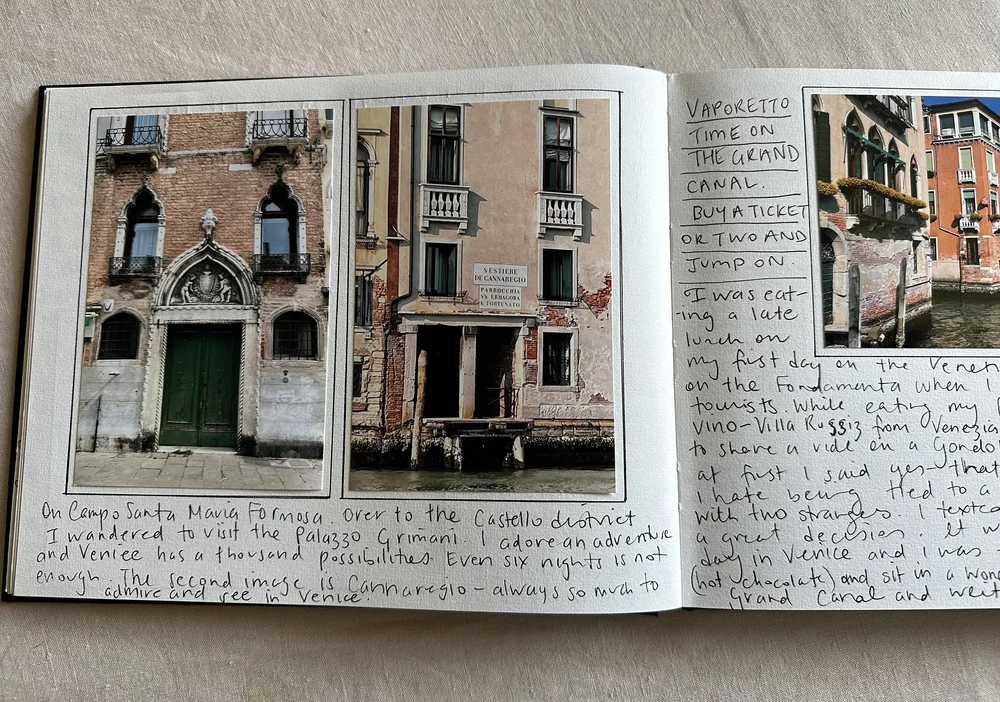 SESTIERE
DE CANNAREGIO
PARROCCHIA
SS. ERMAGORA
E FORTUNATO
On Campo Santa Maria Formosa. Over to the Castello district
I wandered to visit the Palazzo Grimani. I adore an adventure
and Venice has a thousand possibilities. Even six nights is not
enough. The second image is Cannaregio - always so much to
admire and see in Venice.
VAPORETTO
TIME ON
THE GRAND
CANAL.
BUY A TICKET
OR TWO AND
JUMP ON.
I was eat-
-ing a late
lunch on
my first day on the Veneti
on the Fondamenta when I
tourists. While eating my
vino-Villa Russiz from Venezia
to share a ride on a Gondo
at first I said yes - that
I hate being tied to a
with two strangers. I texted
a great decision. It w
day in Venice and i was
(hot chocolate) and sit in a won
Grand Canal and